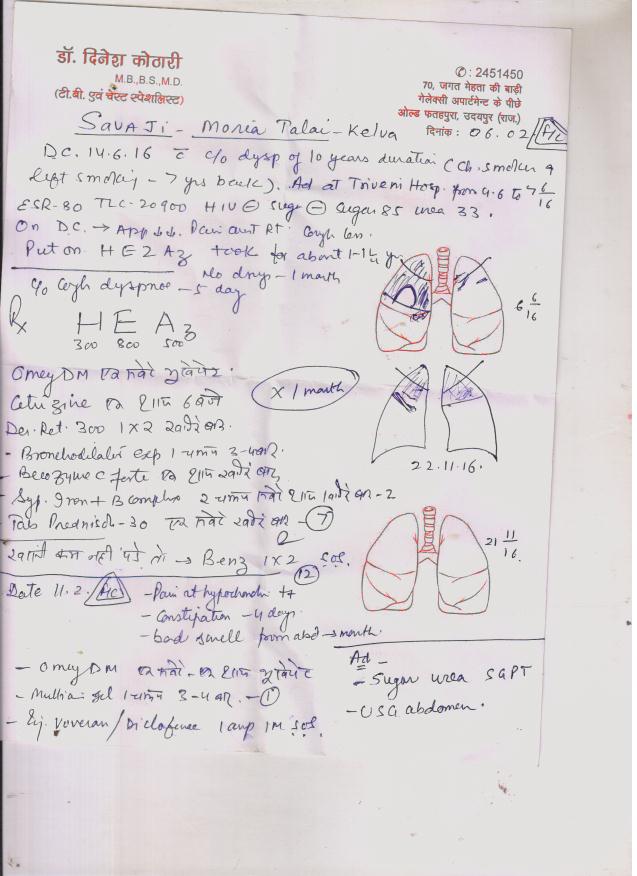 डॉ. दिनेश कोठारी
M.B.,B.S.,M.D.
(टी.बी. एवं चेस्ट स्पेशलिस्ट)
✆ : 2451450
70, जगत मेहता की बाड़ी
गेलेक्सी अपार्टमेन्ट के पीछे
ओल्ड फतहपुरा, उदयपुर (राज.)
दिनांक : 06.02 F/C
SAVAJI - MORIA Talai - Kelva
D.C. 14.6.16 c̄ c/o dysp of 10 years duration (Ch. smoker
left smoking - 7 yrs back). Ad at Triveni Hosp. from 4.6 to 7 6/16
ESR-80 TLC-20900 HIV ⊖ ⊖ Sugar 85 urea 33.
On D.C. → App ↓↓. Pain ant Rt. Cough less.
Put on H E Z Az took for about 1-1¼ yr
No drugs - 1 month
c/o Cough dyspnoea - 5 day
Rx H E Az
300 800 500
6 6/16
Omez DM एक सवेरे भूखे पेट.
x 1 month
Cetrizine एक शाम 6 बजे
Der. Ret. 300 1x2 खाने के बाद.
- Bronchodilator exp 1 चम्मच 3-4 बार.
22.11.16.
- Becozyme C forte एक शाम खाने के बाद
- Syp. Iron + B complex 2 चम्मच सवेरे शाम खाने के बाद - 2
- Tab Prednisol - 30 एक सवेरे खाने के बाद - 7
21 11/16.
खांसी कम नहीं पड़े तो → Benz 1x2 S.O.S.
12
Date 11.2. F/C - Pain at hypochondr ++
- Constipation - 4 days
- bad smell from abd → month.
- Omez DM एक सवेरे - एक शाम भूखे पेट
- gel 1 चम्मच 3-4 बार. - 1
- Inj. Voveran / Diclofenac 1 amp IM S.O.S.
Ad -
- Sugar urea SGPT
- USG abdomen.